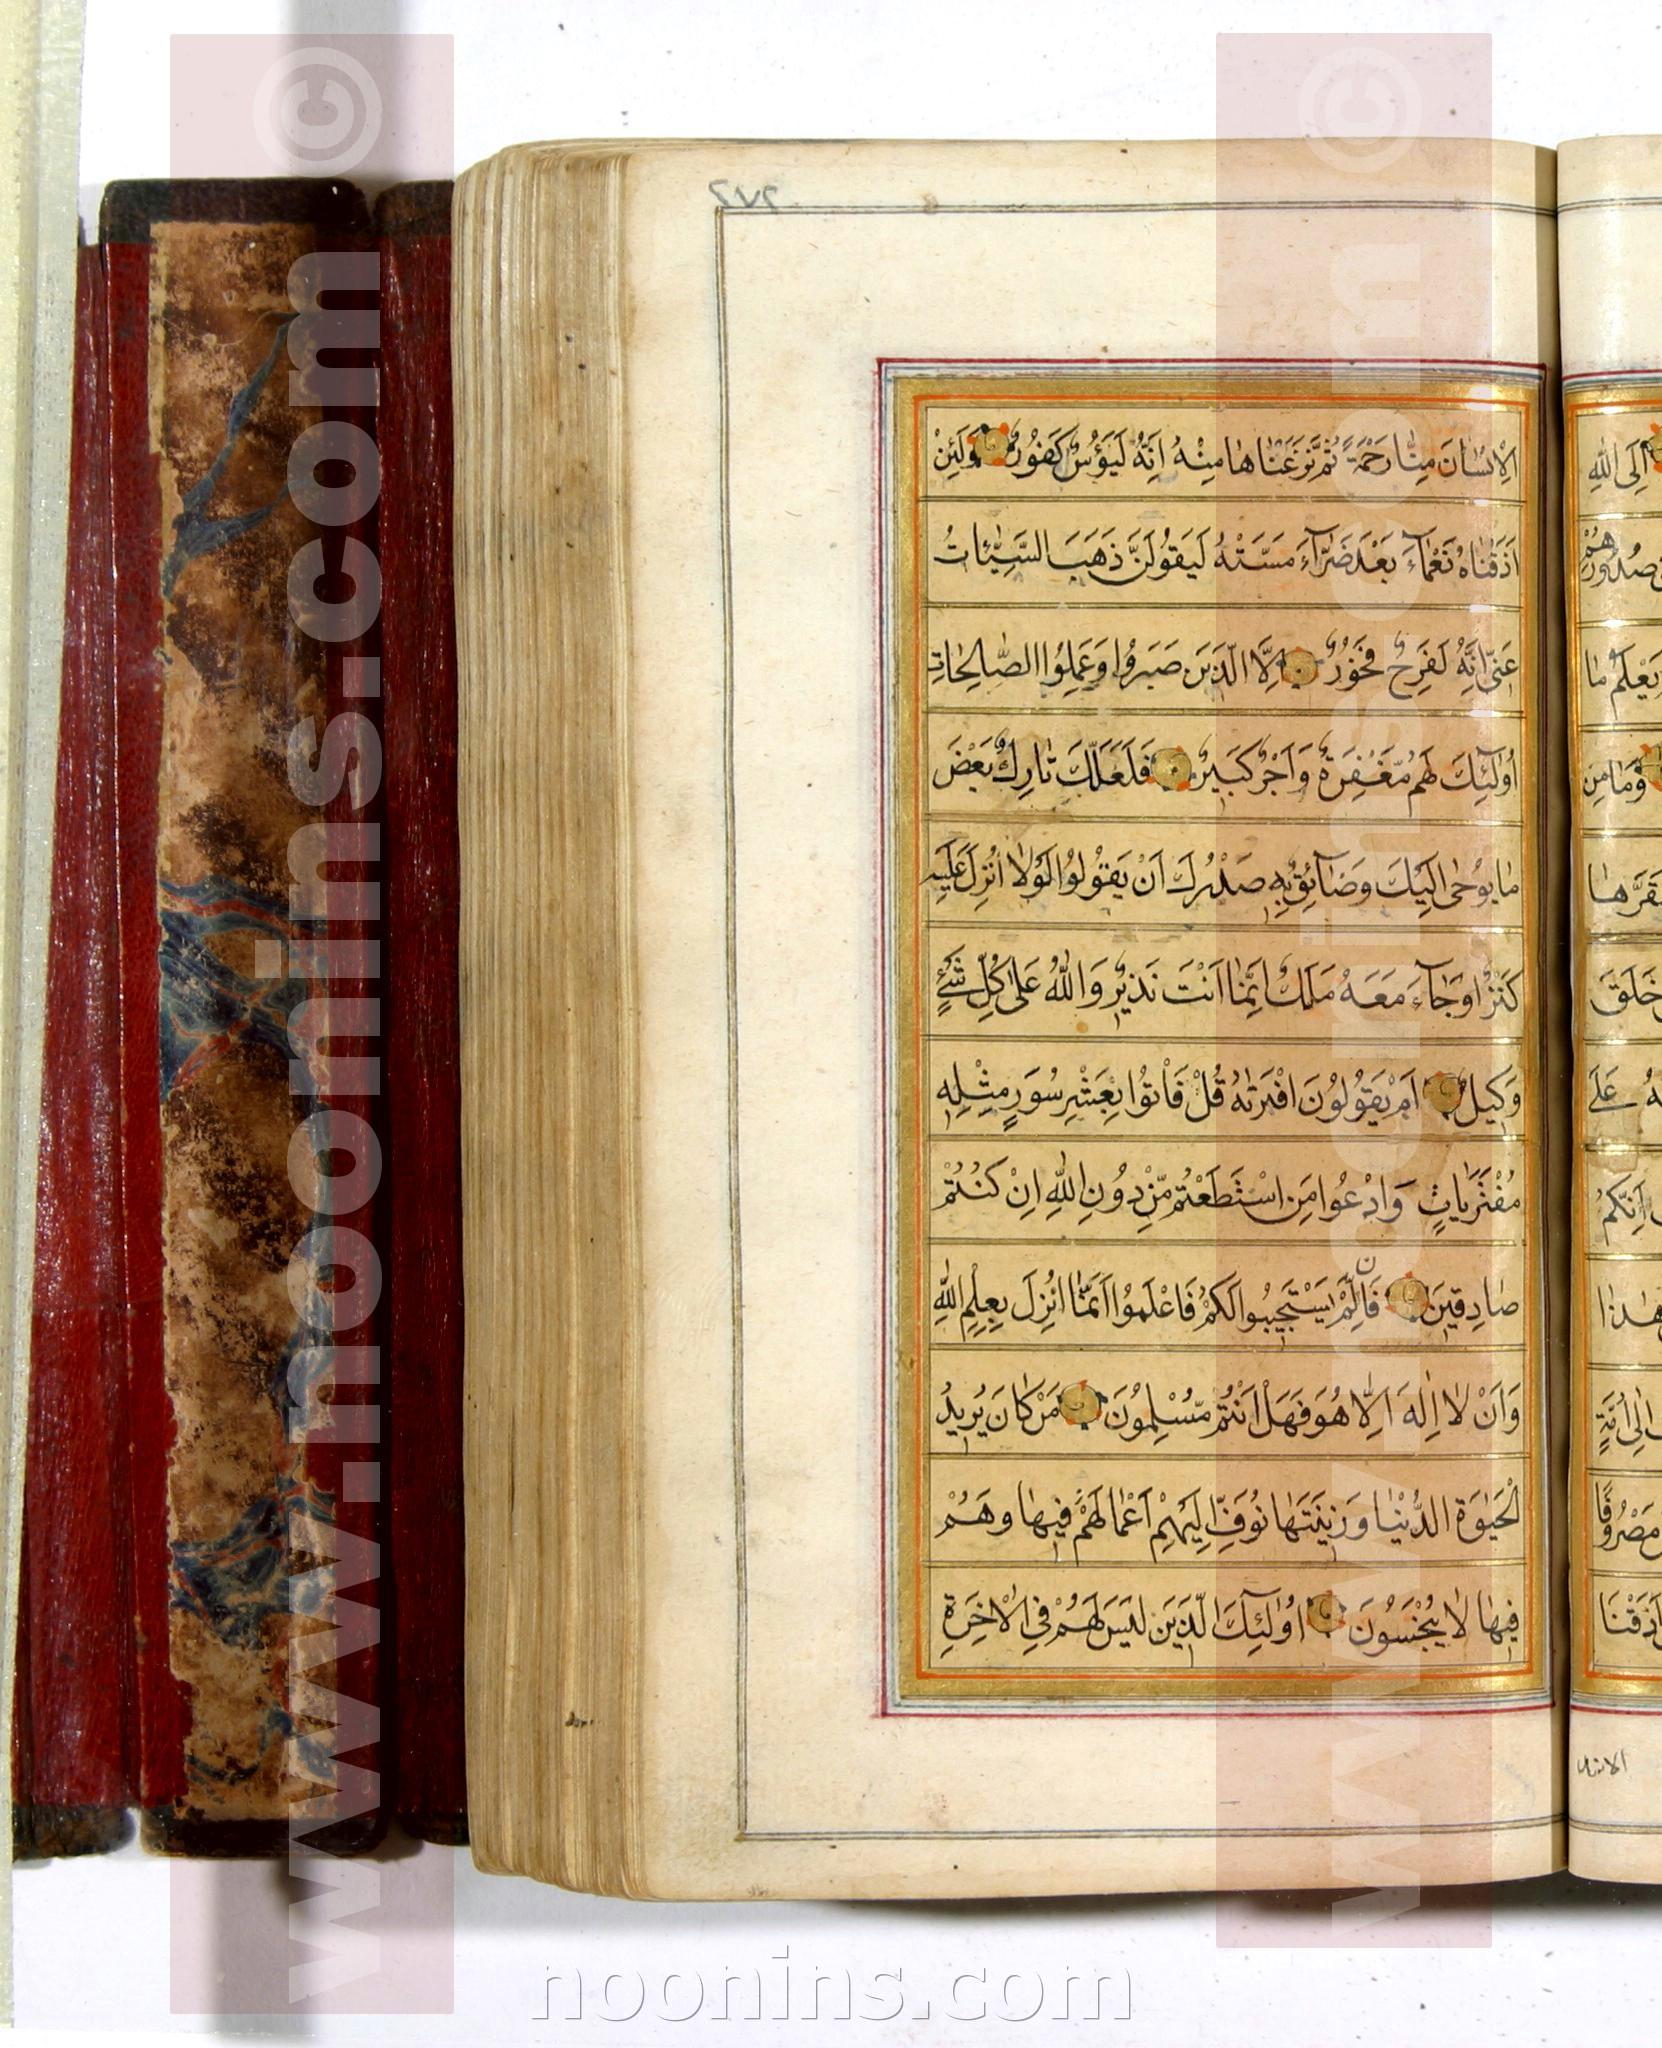 ٢٧٢
الْاِنْسٰانَ مِنّٰا رَحْمَةً ثُمَّ نَزَعْنٰاهٰا مِنْهُ اِنَّهُ لَيَؤُسٌ كَفُورٌ وَلَئِنْ
اَذَقْنٰاهُ نَعْمٰاۤءَ بَعْدَ ضَرّٰاۤءَ مَسَّتْهُ لَيَقُولَنَّ ذَهَبَ السَّيِّئٰاتُ
عَنّٖى اِنَّهُ لَفَرِحٌ فَخُورٌ اِلَّا الَّذٖينَ صَبَرُوا وَعَمِلُوا الصّٰالِحٰاتِ
اُولٰۤئِكَ لَهُمْ مَغْفِرَةٌ وَاَجْرٌ كَبٖيرٌ فَلَعَلَّكَ تٰارِكٌ بَعْضَ
مٰا يُوحٰى اِلَيْكَ وَضٰاۤئِقٌ بِهٖ صَدْرُكَ اَنْ يَقُولُوا لَوْلٰا اُنْزِلَ عَلَيْهِ
كَنْزٌ اَوْ جٰاۤءَ مَعَهُ مَلَكٌ اِنَّمٰا اَنْتَ نَذٖيرٌ وَاللّٰهُ عَلٰى كُلِّ شَيْءٍ
وَكٖيلٌ اَمْ يَقُولُونَ افْتَرٰيهُ قُلْ فَأْتُوا بِعَشْرِ سُوَرٍ مِثْلِهٖ
مُفْتَرَيٰاتٍ وَادْعُوا مَنِ اسْتَطَعْتُمْ مِنْ دُونِ اللّٰهِ اِنْ كُنْتُمْ
صٰادِقٖينَ فَاِلَّمْ يَسْتَجٖيبُوا لَكُمْ فَاعْلَمُوا اَنَّمٰا اُنْزِلَ بِعِلْمِ اللّٰهِ
وَاَنْ لٰا اِلٰهَ اِلّٰا هُوَ فَهَلْ اَنْتُمْ مُسْلِمُونَ مَنْ كٰانَ يُرٖيدُ
الْحَيٰوةَ الدُّنْيٰا وَزٖينَتَهٰا نُوَفِّ اِلَيْهِمْ اَعْمٰالَهُمْ فٖيهٰا وَهُمْ
فٖيهٰا لٰا يُبْخَسُونَ اُولٰۤئِكَ الَّذٖينَ لَيْسَ لَهُمْ فِي الْاٰخِرَةِ
اِلَى اللّٰهِ
صُدُورَهُمْ
يَعْلَمُ مٰا
وَمٰا مِنْ
خَلَقَ
عَلَى
اِنَّكُمْ
هٰذٰا
اِلٰى اُمَّةٍ
مَصْرُوفًا
اَذَقْنَا
الانسان
www.noonins.com ©
www.noonins.com ©
noonins.com